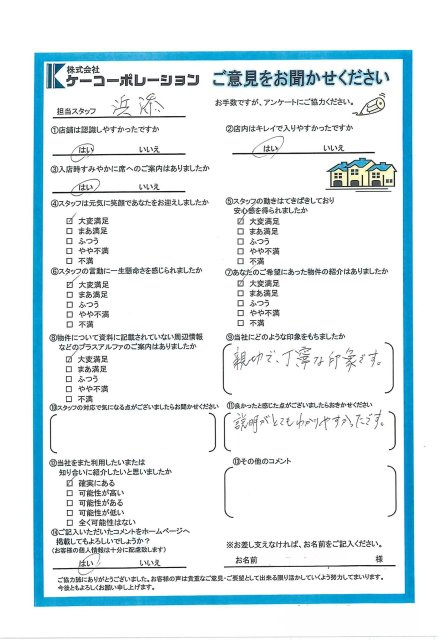 株式会社
ケーコーポレーション
ご意見をお聞かせください
担当スタッフ 浜添
お手数ですが、アンケートにご協力ください。
①店舗は認識しやすかったですか
はい いいえ
②店内はキレイで入りやすかったですか
はい いいえ
③入店時すみやかに席へのご案内はありましたか
はい いいえ
④スタッフは元気に笑顔であなたをお迎えしましたか
☑ 大変満足
□ まあ満足
□ ふつう
□ やや不満
□ 不満
⑤スタッフの動きはてきぱきしており
安心感を得られましたか
☑ 大変満足
□ まあ満足
□ ふつう
□ やや不満
□ 不満
⑥スタッフの言動に一生懸命さを感じられましたか
☑ 大変満足
□ まあ満足
□ ふつう
□ やや不満
□ 不満
⑦あなたのご希望にあった物件の紹介はありましたか
☑ 大変満足
□ まあ満足
□ ふつう
□ やや不満
□ 不満
⑧物件について資料に記載されていない周辺情報
などのプラスアルファのご案内はありましたか
☑ 大変満足
□ まあ満足
□ ふつう
□ やや不満
□ 不満
⑨当社にどのような印象をもちましたか
親切で、丁寧な印象です。
⑩スタッフの対応で気になる点がございましたらお聞かせください
⑪良かったと感じた点がございましたらおきかせください
説明がとてもわかりやすかったです。
⑫当社をまた利用したいまたは
知り合いに紹介したいと思いましたか
☑ 確実にある
□ 可能性が高い
□ 可能性がある
□ 可能性が低い
□ 全く可能性はない
⑬その他のコメント
⑭ご記入いただいたコメントをホームページへ
掲載してもよろしいでしょうか?
(お客様の個人情報は十分に配慮致します)
はい いいえ
※お差し支えなければ、お名前をご記入ください。
お名前 様
ご協力誠にありがとうございました。お客様の声は貴重なご意見・ご要望として出来る限り活かしていくよう努力してまいります。
今後ともよろしくお願い申し上げます。